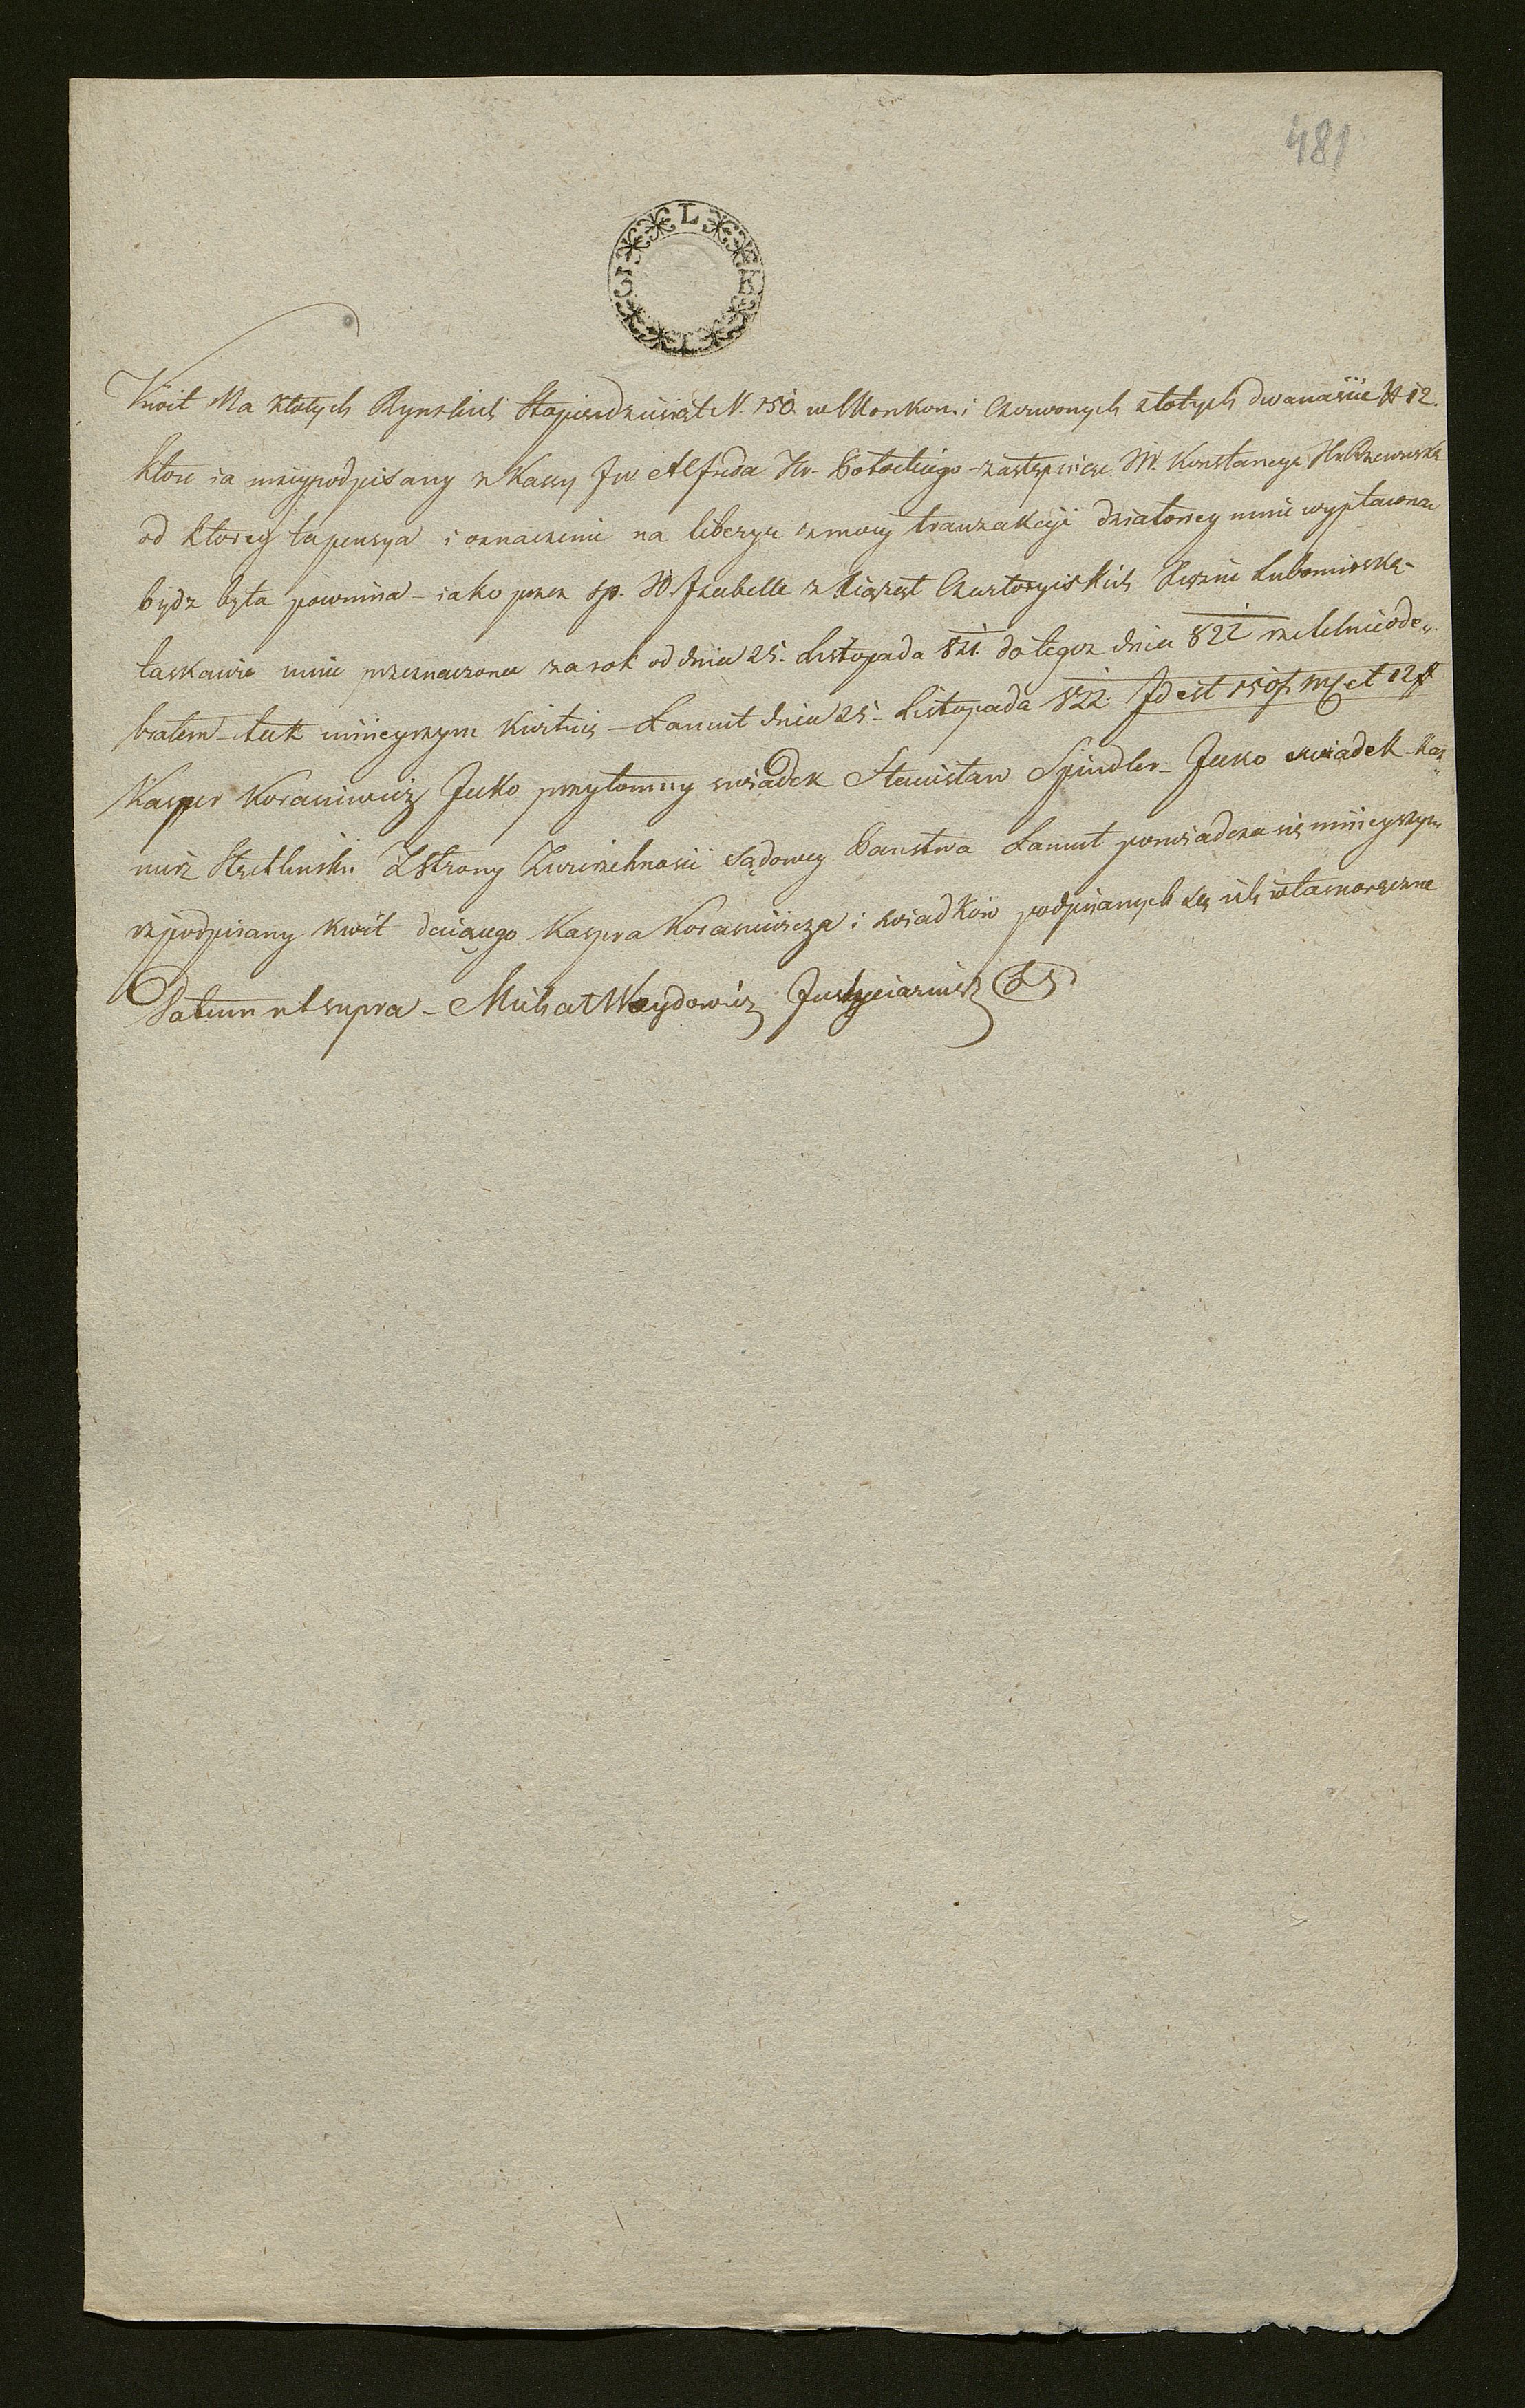 481
L
3 K
I
Kwit Na złotych Rynskich Stopiendziesiąt N. 150. w Monkon: i Czerwonych złotych dwanaście # 12.
ktore ia niżeypodpisany z Kassy Jw Alfreda Hr. Potockiego - zastępuiące JW. Konstancye Hr. Rzewuską
od ktorey ta pensya i oznaczenie na liberye z mocy tranzakcyi działowey mnie wypłacona
bydz była powinna - iako przez Sp. JO. Izabelle z Xiążąt Czartoryiskich Xiężnę Lubomirską -
łaskawie mnie przeznaczona za rok od dnia 25. Listopada 821. do tegoż dnia 822 rzetelnie ode„
brałem - tak ninieyszym kwituię - Łancut dnia 25 - Listopada 822. Id est 150 f. my et 12 #
Kasper Koraniewicz Jako przytomny swiadek Stanisław Spindler - Jako swiadek - Kaź„
mirz Zstrony Zwierzchnosci Sądowey Panstwa Łancut poswiadcza się ninieyszym
iż podpisany kwit daiącego Kaspra Koraniewicza i swiadków podpisanych są ich własnoręczne
Datum ut supra - Michał Waydowicz Justycyariusz LS